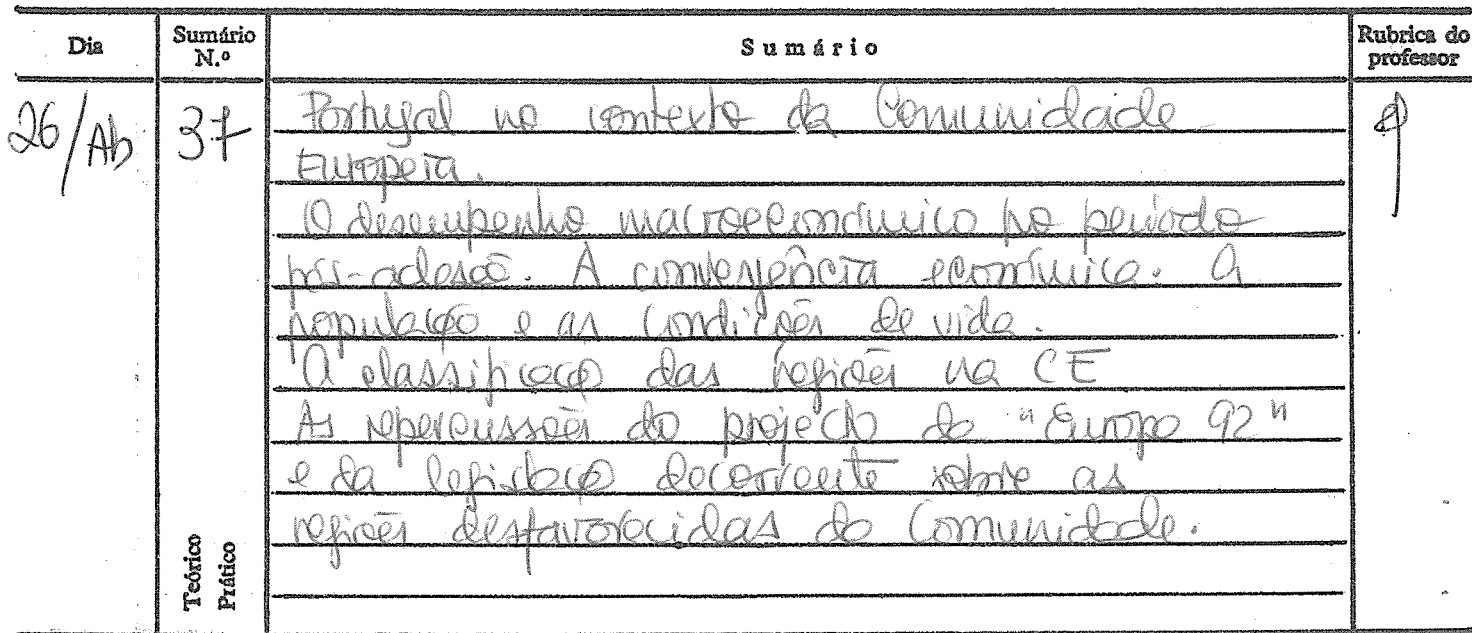 Dia Sumário N.º Sumário Rubrica do professor
26/Ab 37 Portugal no contexto da Comunidade
Europeia.
O desempenho macroeconómico no período
pós-adesão. A convergência económica. A
população e as condições de vida.
A classificação das regiões na CE
As repercussões do projecto da "Europa 92"
e da legislação decorrente sobre as
regiões desfavorecidas da Comunidade.
Teórico
Prático